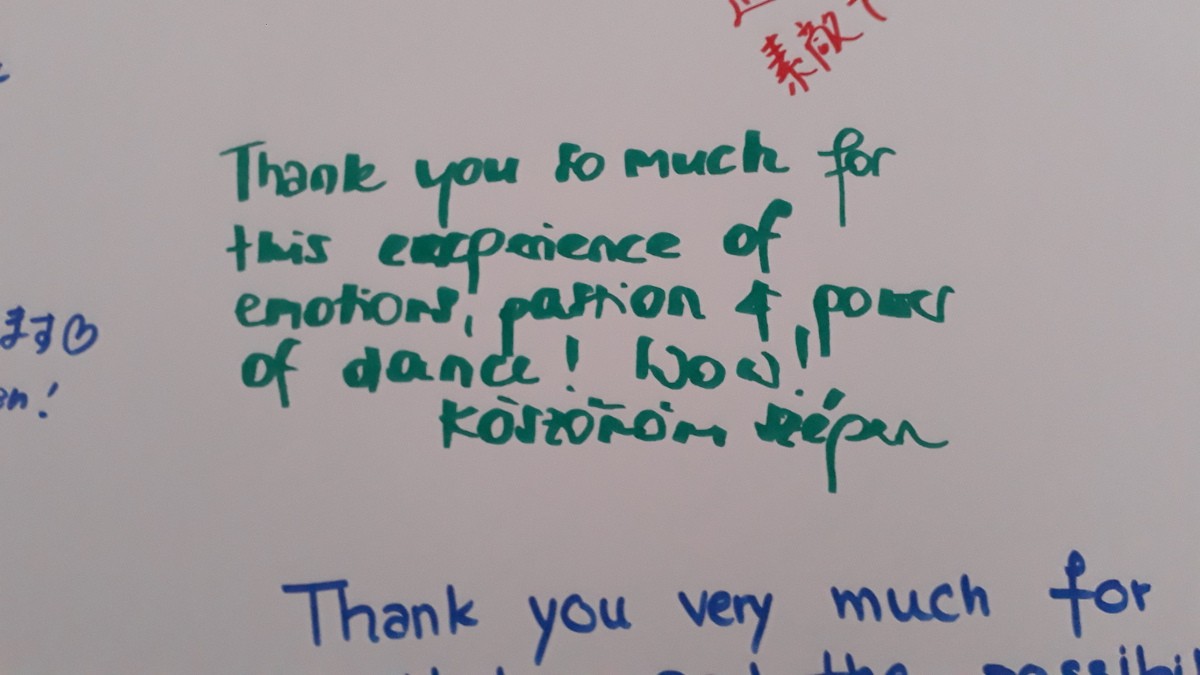 素敵
Thank you so much for
this experience of
emotions, passion & power
of dance! Wow!
Köszönöm szépen
ます♡
en!
Thank you very much for
the possibil